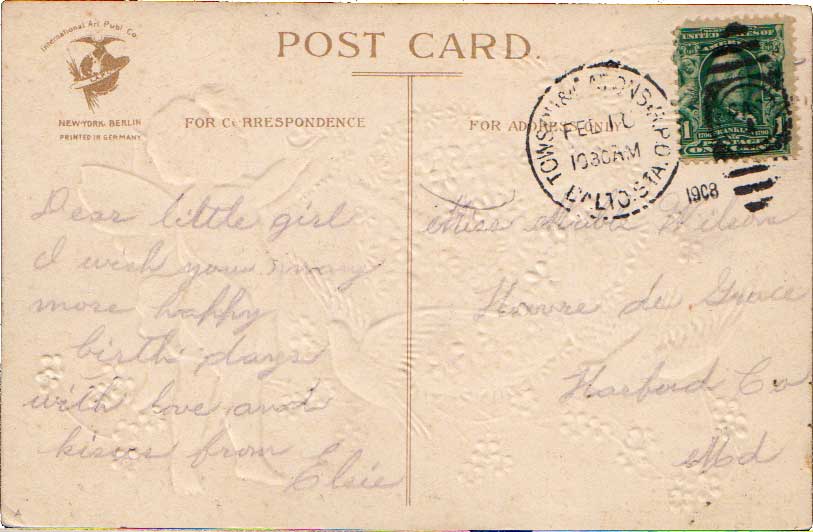 International Art Publ Co.
NEW-YORK. BERLIN
PRINTED IN GERMANY
POST CARD.
FOR CORRESPONDENCE
FOR ADDRESS ONLY
FEB 10
1030AM
BALTO.STA.
1908
UNITED STATES OF
AMERICA
1 1706 FRANKLIN 1790 1
POSTAGE
ONE
Dear little girl
I wish you many
more happy
birth days
with love and
kisses from
Elsie
Miss Wilson
Havre de Grace
Harford Co
Md